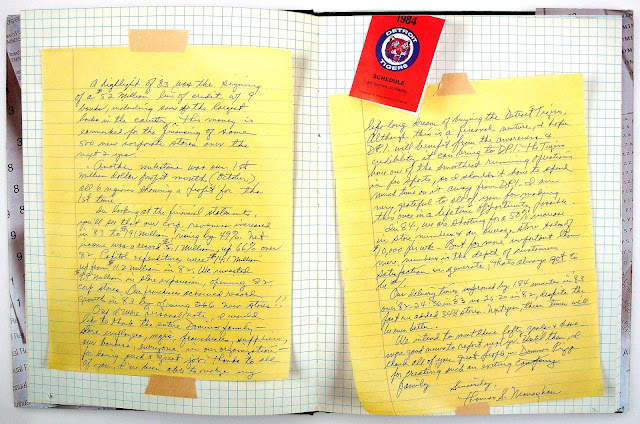 A highlight of 83 was the signing
of a $52 million line of credit at 8
banks, including some of the largest
banks in the country. This money is
earmarked for the financing of some
500 new corporate stores over the
next 2 yrs.
Another milestone was our 1st
million dollar profit month (October),
all 6 regions showing a profit for the
1st time.
In looking at the financial statements,
you'll see that our corp. revenues increased
in 83 to million, rising by 49%. Net
income was a record million, up 66% over
82. Capital expenditures were million
up from $11.2 million in 82. We invested
million in store expansion, opening 82
corp stores. Our franchisees achieved record
growth in 83 by opening 266 new stores!!
On a more personal note, I would
like to thank the entire Domino family -
store employees, mgrs, franchisees, suppliers,
our bankers, everyone in our organization -
for doing such a great job. Thanks to all
of you, I've been able to realize my
1984
DETROIT
TIGERS
SCHEDULE
life-long dream of buying the Detroit Tigers.
Although this is a personal venture, I hope
DPI will benefit from the awareness &
credibility it can bring to DPI. The Tigers
have one of the smoothest running operations
in pro sports, so I shouldn't have to spend
much time on it away from DPI. I am
very grateful to all of you for making
this once in a lifetime opportunity possible.
In 84, we are shooting for a 50% increase
in store numbers & an average store sales of
$10,000 per wk. - but far more important than
mere numbers is the depth of customer
satisfaction we generate, that's always got to
be #1
Our delivery times improved by 1.84 minutes in 83
over 82. 24.36 in 83 vs 26.20 in 82, despite the
fact we added 348 stores. Next year these times will
be even better.
We intend to meet these lofty goals & have
more good news to report next yr. Until then, I
thank all of you great people in Domino's Pizza
for creating such an exciting company
family.
Sincerely,
Thomas S. Monaghan